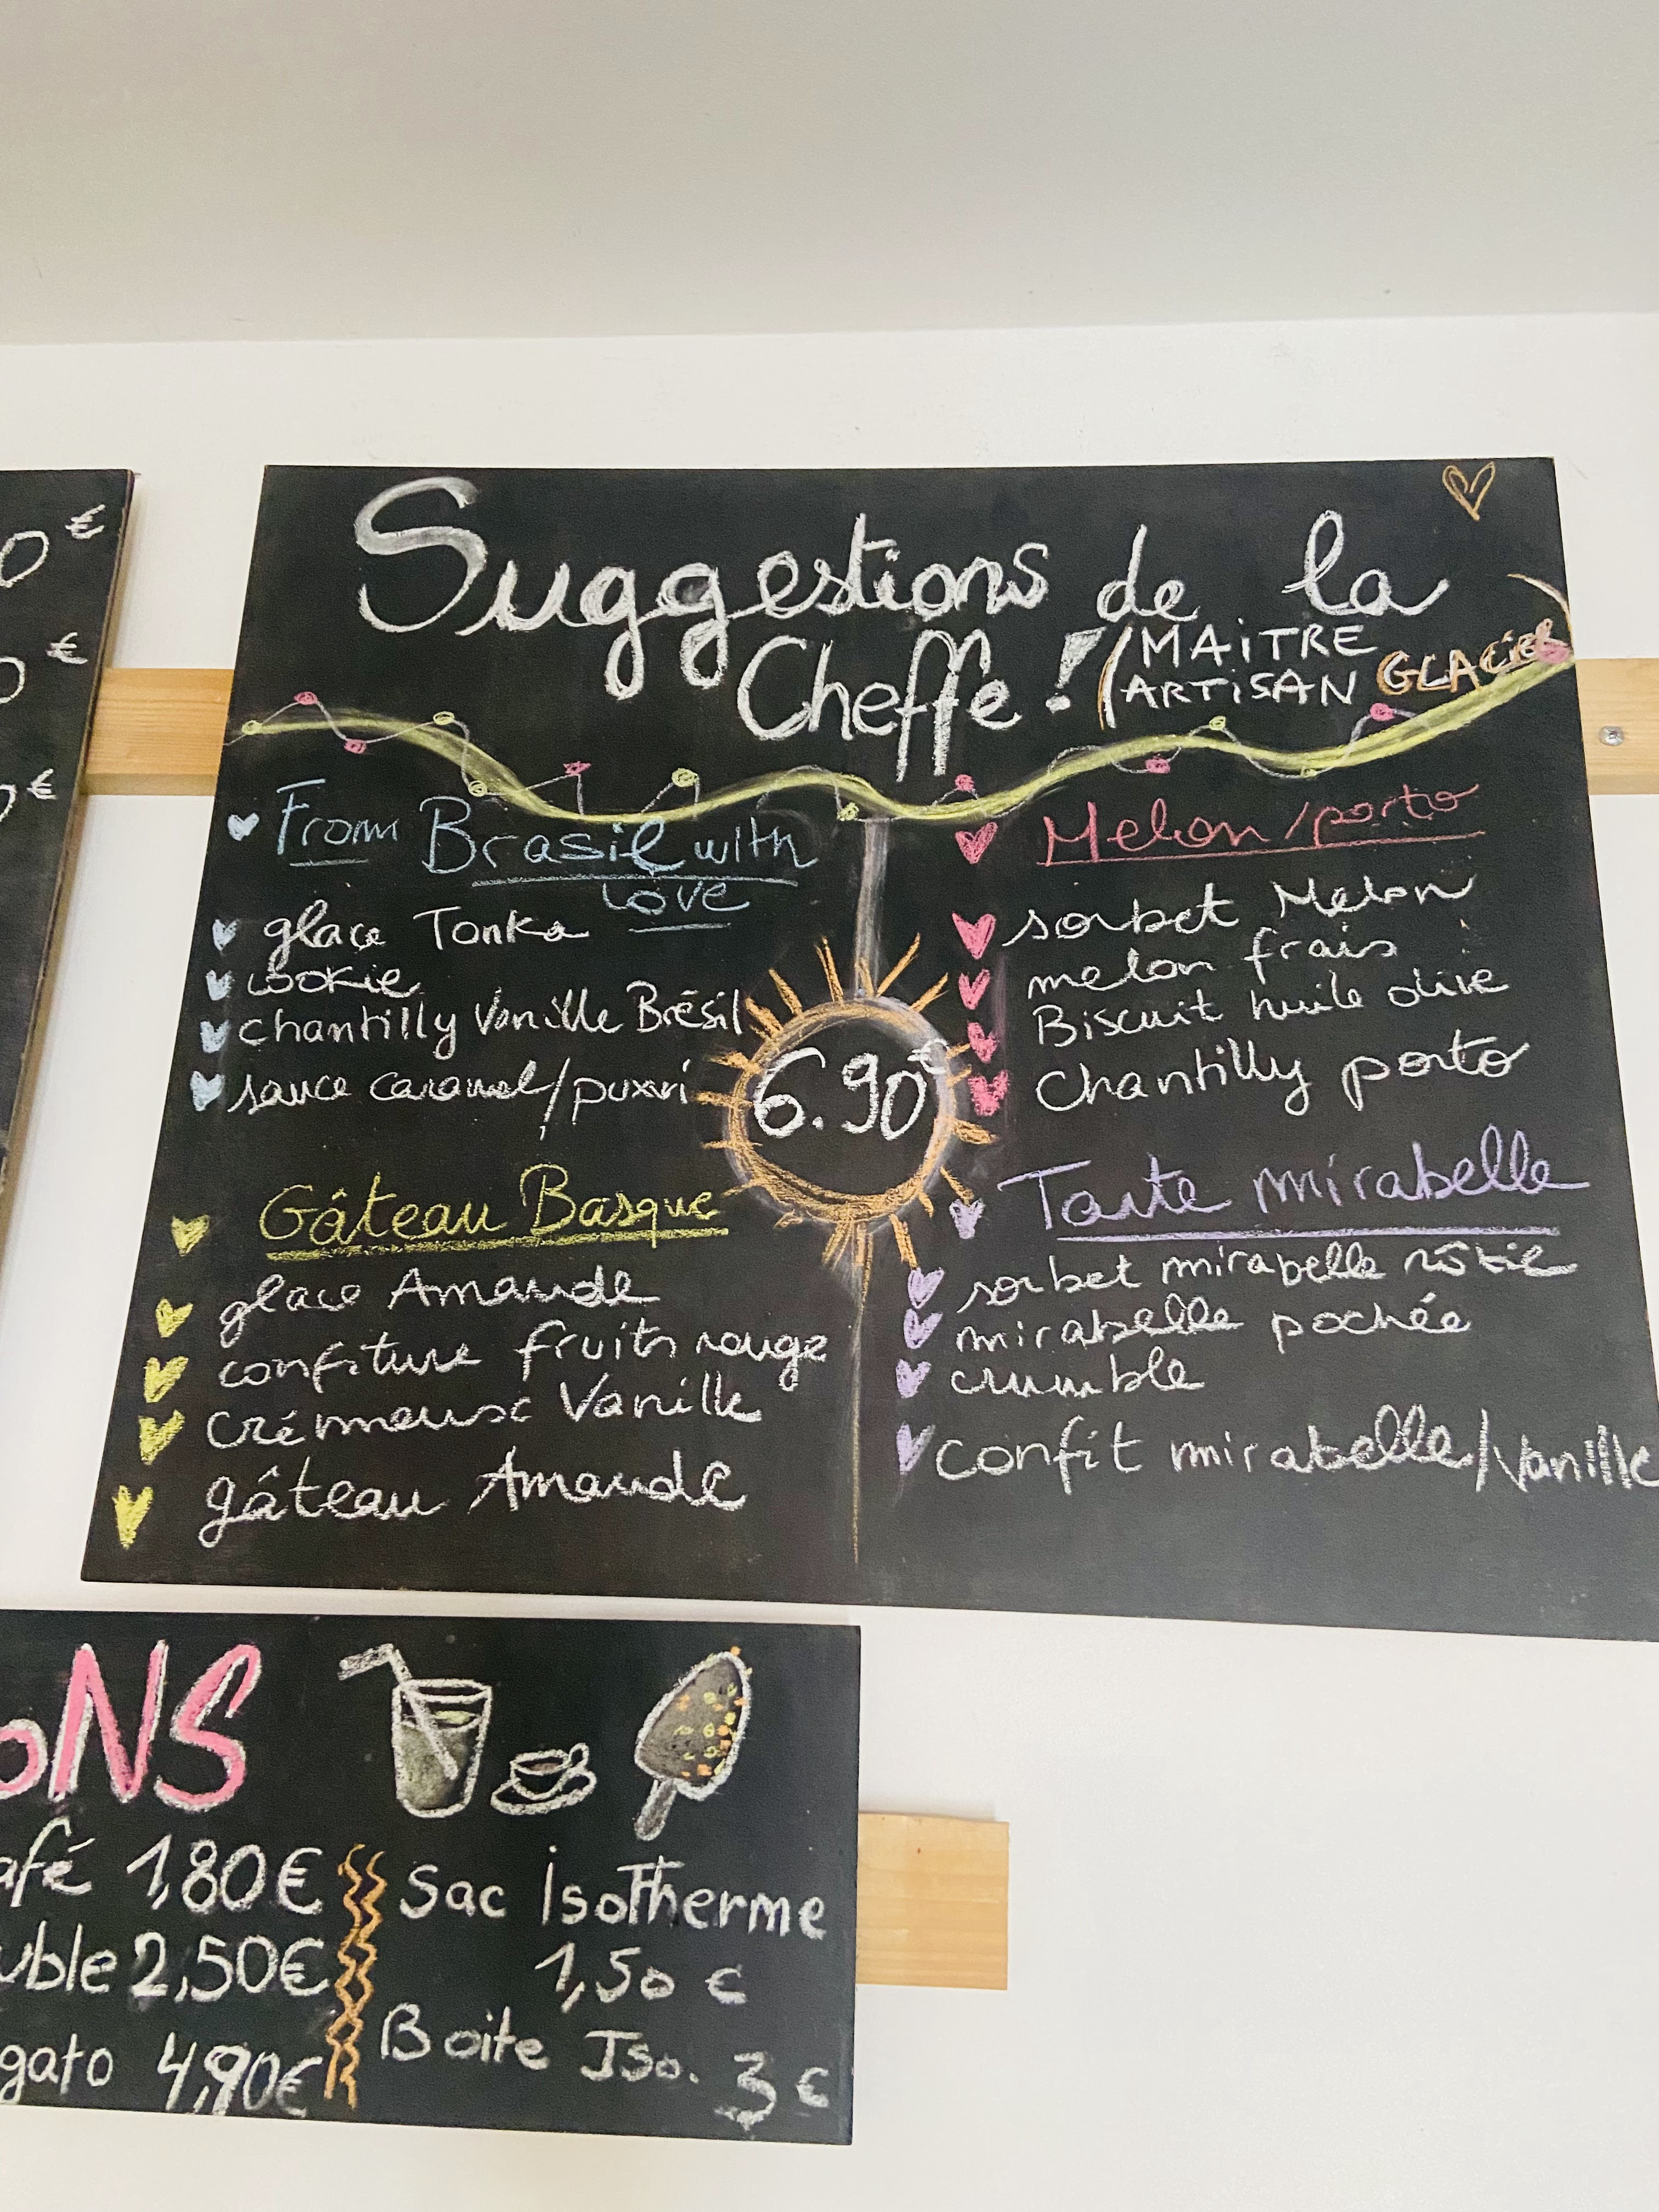 0€
0€
0€
Suggestions de la
Cheffe ! (MAITRE
ARTISAN GLACIER
From Brasil with
love
glace Tonka
cookie
chantilly Vanille Brésil
sauce caramel/puxuri
Gâteau Basque
glace Amande
confiture fruits rouge
crémeuse Vanille
gâteau Amande
6.90€
Melon/porto
sorbet Melon
melon frais
Biscuit huile olive
Chantilly porto
Tarte mirabelle
sorbet mirabelle rôtie
mirabelle pochée
crumble
confit mirabelle/Vanille
oNS
afé 1,80€
uble 2,50€
gato 4,90€
Sac isotherme
1,50 €
Boite Iso. 3€